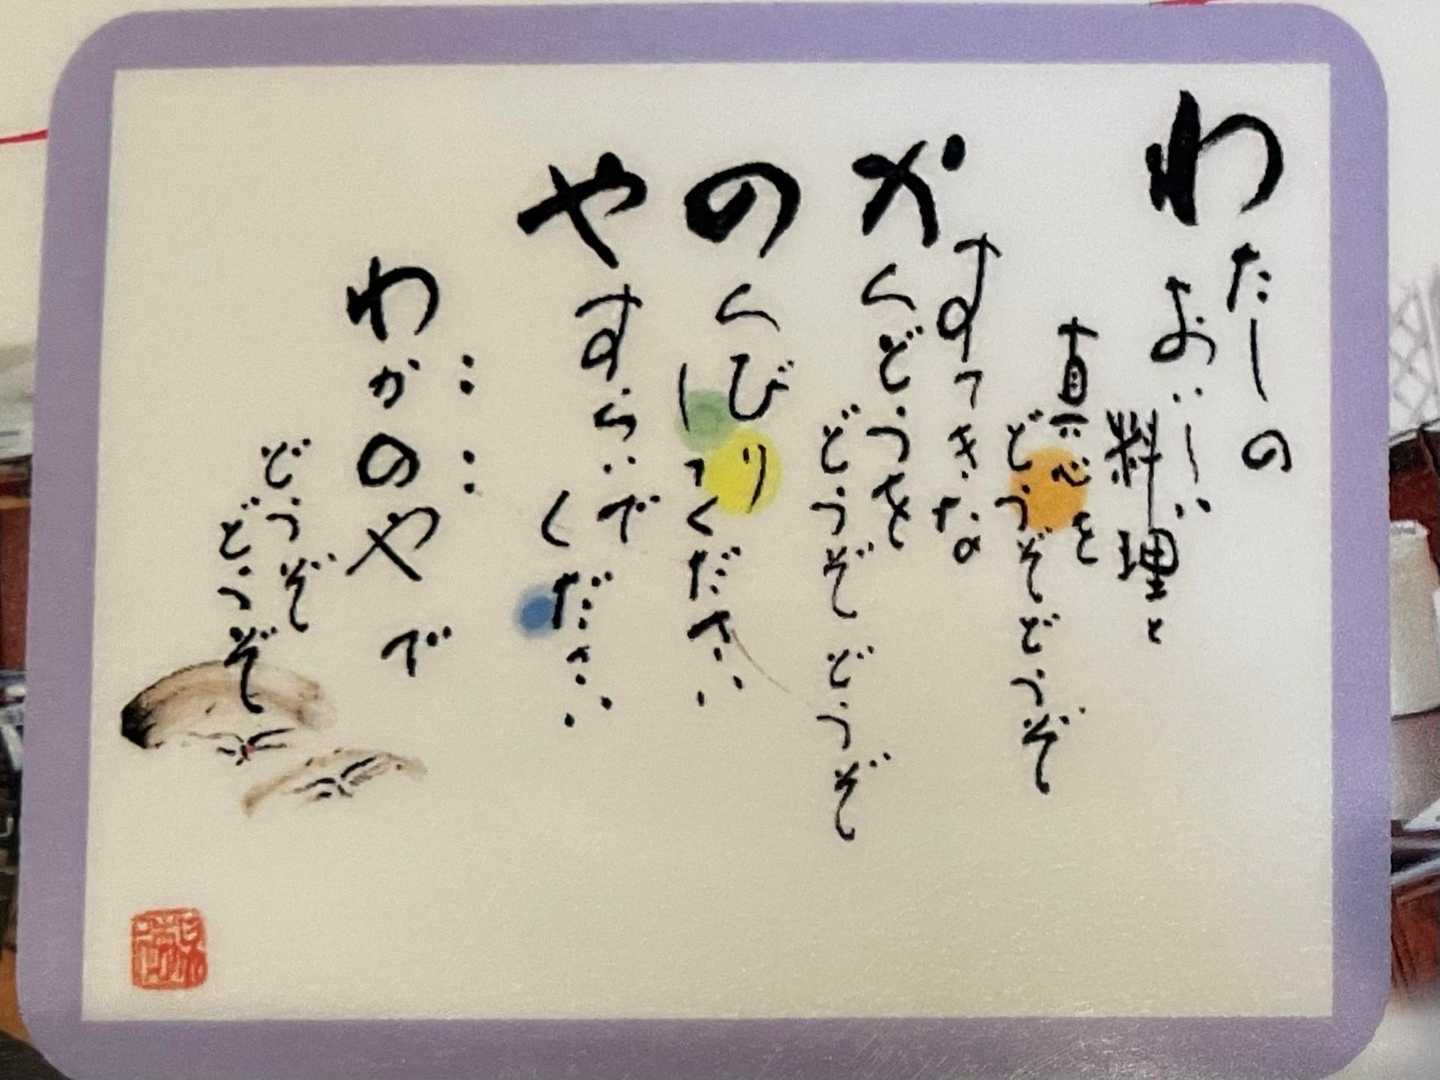 わたしの
おいしい
料理と
真心を
どうぞどうぞ
すてきな
かんどうを
どうぞどうぞ
のんびり
してください
やすらいで
ください
‥‥
わかのやで
どうぞ
どうぞ